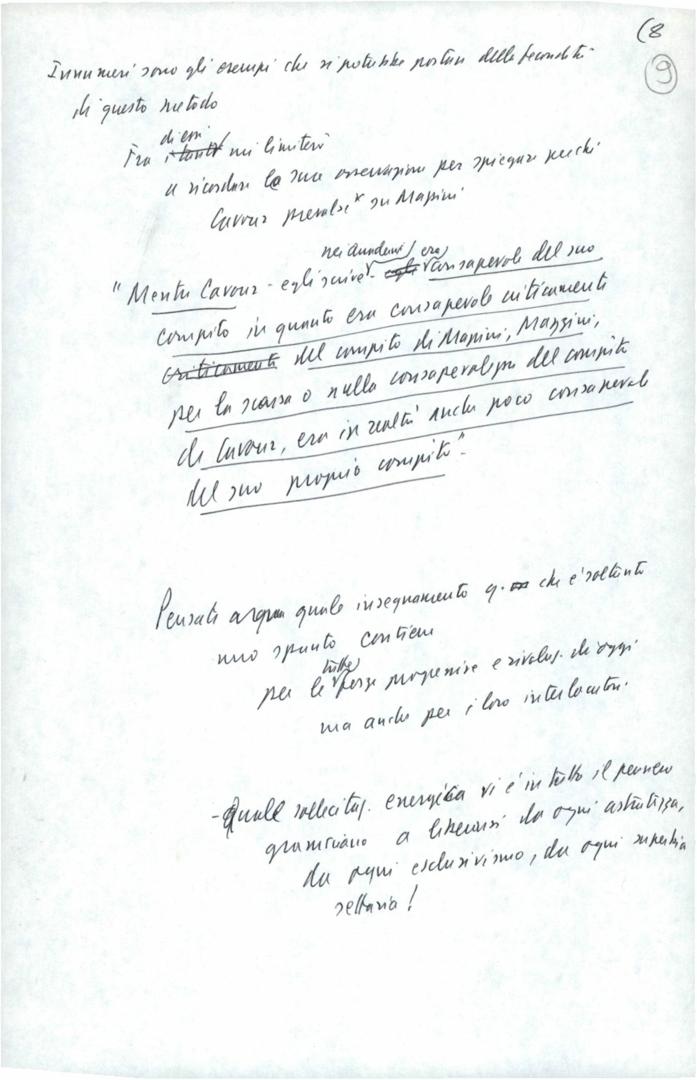 (8
9
Innumeri sono gli esempi che si potrebbe portare della fecondità
di questo metodo
Fra i tanti di essi mi limiterò
a ricordare la sua osservazione per spiegare perché
Cavour prevalse su Mazzini
"Mentre Cavour - egli scrive nei Quaderni - egli era consapevole del suo
compito in quanto era consapevole criticamente
criticamente del compito di Mazzini, Mazzini,
per la scarsa o nulla consapevolezza del compito
di Cavour, era in realtà anche poco consapevole
del suo proprio compito".
Pensate quale insegnamento q. che è soltanto
uno spunto contiene
per le tutte forze progressive e rivoluz. di oggi
ma anche per i loro interlocutori.
- Quale sollecitaz. energica vi è in tutto il pensiero
gramsciano a liberarsi da ogni astrattezza,
da ogni esclusivismo, da ogni superbia
settaria!